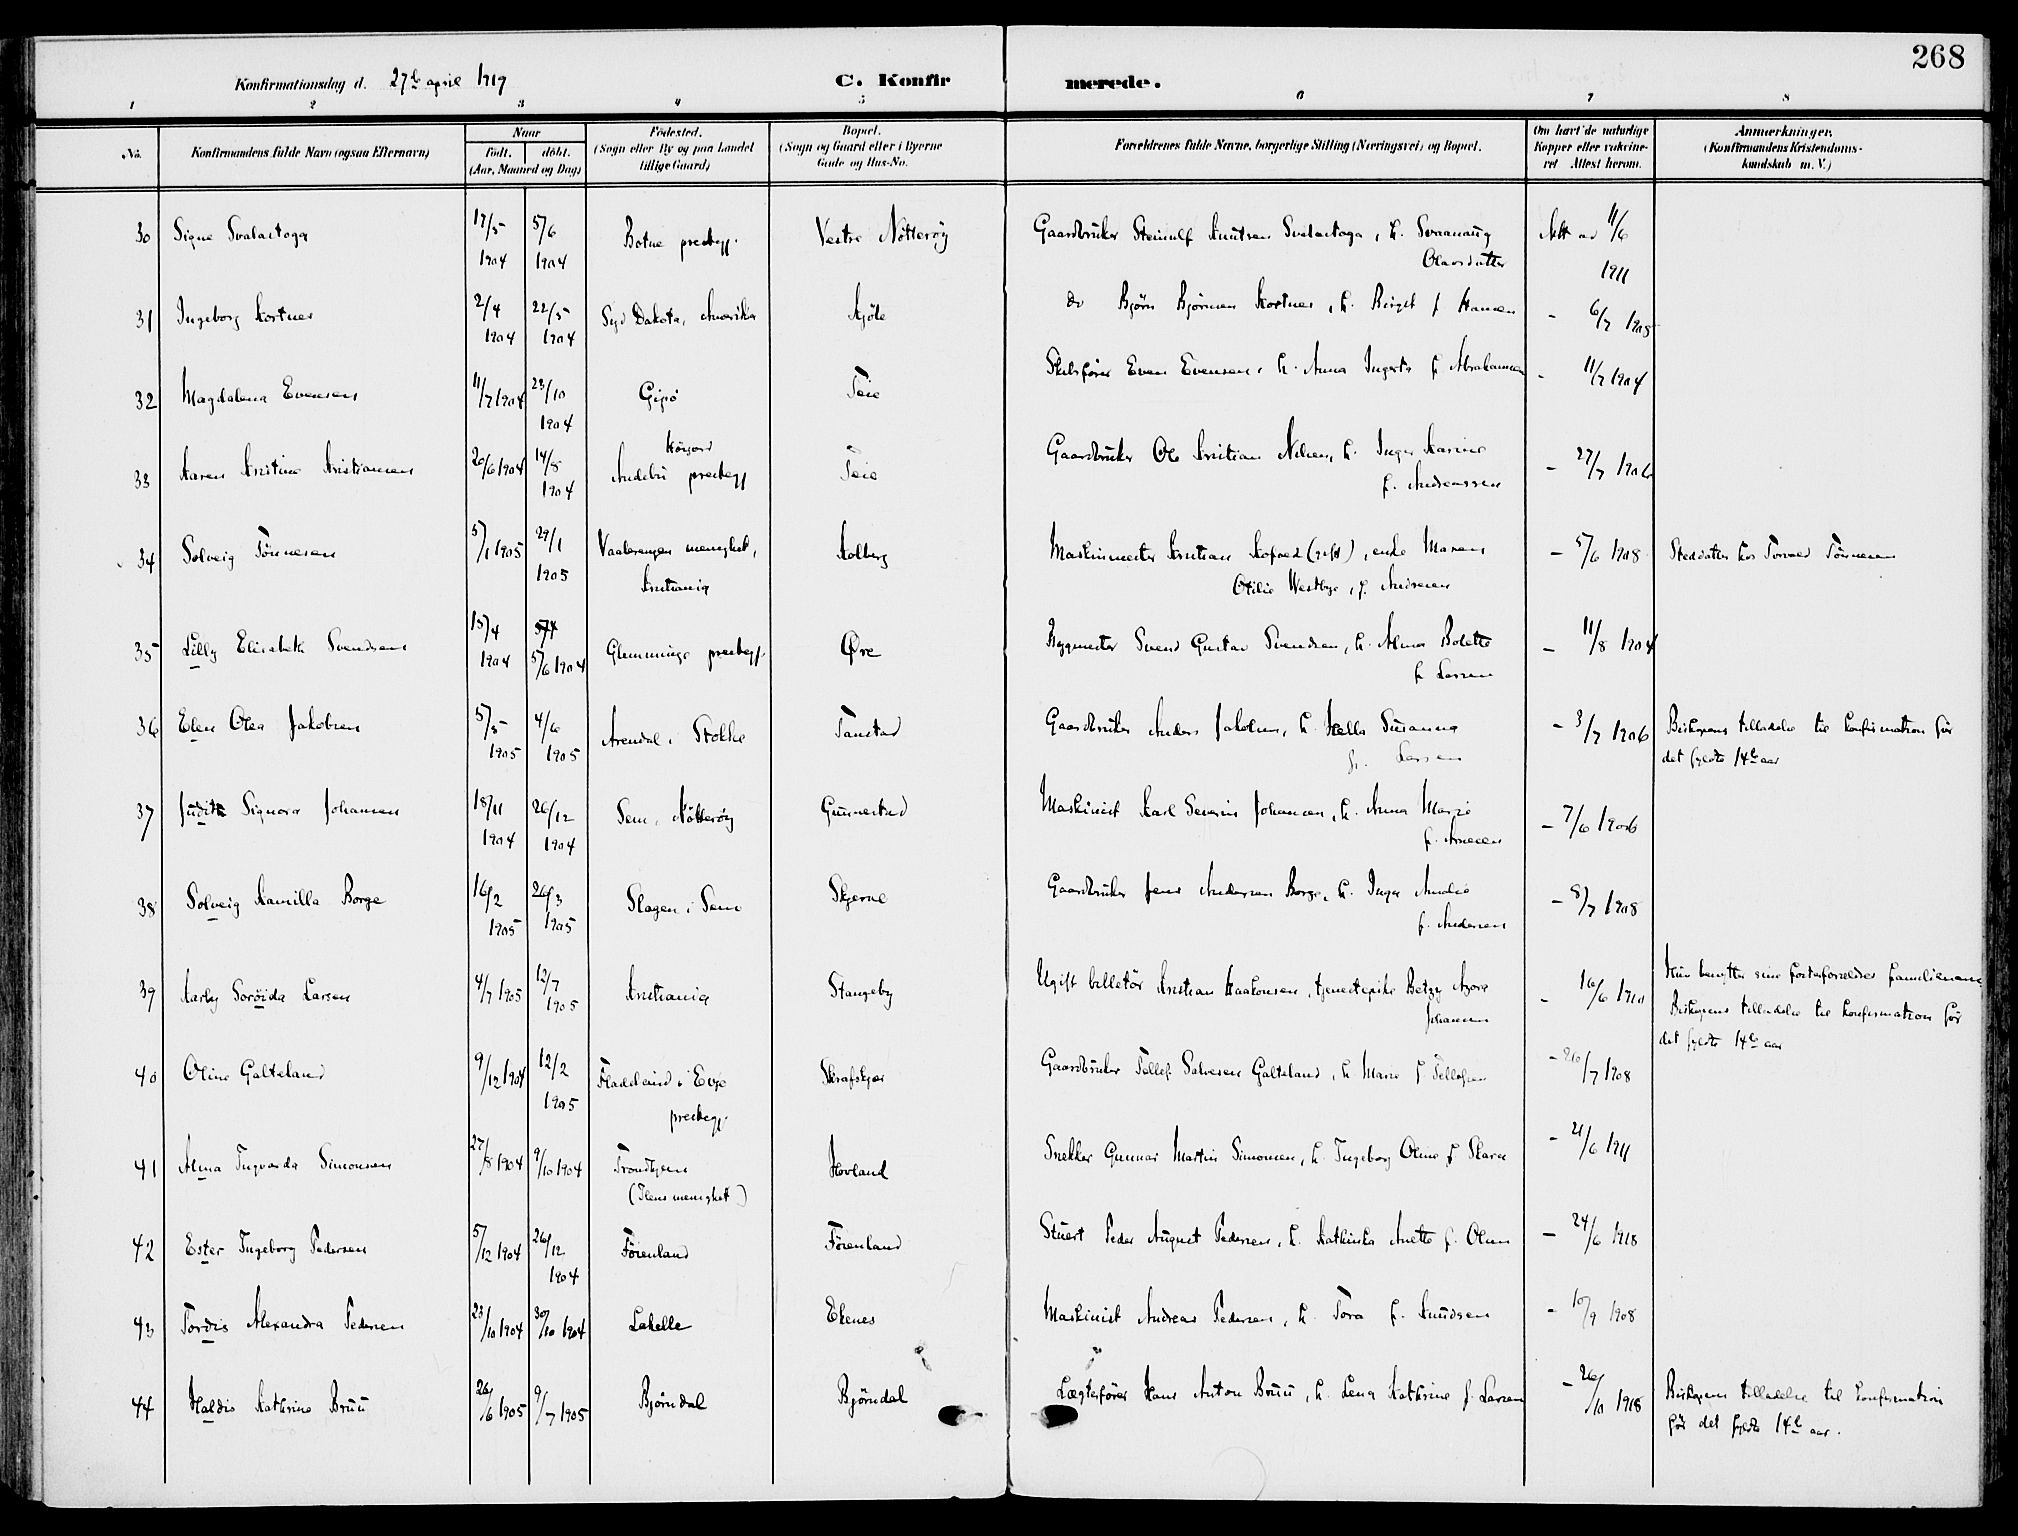 268
Konfirmationsdag d. 27de april 1919 C. Konfirmerede.
1 2 3 4 5 6 7 8
No. Konfirmandens fulde Navn (ogsaa Efternavn) Naar født. døbt. (Aar, Maaned og Dag) Fødested. (Sogn eller By og paa Landet tillige Gaard) Bopæl. (Sogn og Gaard eller i Byerne Gade og Hus-No. Forældrenes fulde Navne, borgerlige Stilling (Næringsvei) og Bopæl. Om havt de naturlige Kopper eller vakcineret Attest herom. Anmærkninger. (Konfirmandens Kristendomskundskab m. V.)
30 Signe Svalastoga 17/5 1904 5/6 1904 Botne prestegj. Vestre Nøtterøy Gaardbruker Steinulf Knutsen Svalastoga, h. Svanaug Olavsdatter Att av 11/6 1911
31 Ingeborg Kortner 2/4 1904 22/5 1904 Syd Dakota, Amerika Kjøle do Bjørn Bjørnsen Kortner, h. Birgit f Hansen - 6/7 1908
32 Magdalena Evensen 11/7 1904 23/10 1904 Gipø Teie Skibsfører Even Evensen, h. Anna Ingerta f. Abrahamsen - 11/7 1904
33 Karen Kristine Kristiansen 20/6 1904 14/8 1904 Andebu prestegj Teie Gaardbruker Ole Kristian Nilsen, h. Inger Karine f. Andreassen - 27/7 1906
34 Solveig Tønnesen 5/1 1905 29/1 1905 Vaalerengen menighet, Kristiania Kolberg Maskinmester Kristian Kofoed (gift), enke Maren Otilie Westbye, f. Andresen - 5/6 1908 Steddatter hos Torvald Tønnesen
35 Lilly Elisabeth Svendsen 15/4 1904 5/4 5/6 1904 Glemminge prestegj. Øre Bygmester Svend Gustav Svendsen, h. Alma Bolette f Larsen - 11/8 1904
36 Elen Olea Jakobsen 5/5 1905 4/6 1905 Arendal i Stokke Tanstad Gaardbruker Anders Jakobsen, h. Hella Susanna f. Larsen - 3/7 1906 Biskopens tilladelse til konfirmation før det fyldte 14de aar
37 Judith Signora Johansen 18/11 1904 26/12 1904 Sem, Nøtterøy Gunnestad Maskinist Karl Severin Johansen, h. Anna Marie f. Arnesen - 7/6 1906
38 Solveig Kamilla Borge 16/2 1905 26/3 1905 Slagen i Sem Skjerve Gaardbruker Jens Andersen Borge, h. Inga Amalie f. Andersen - 8/7 1908
39 Karly Larsen 4/7 1905 12/7 1905 Kristiania Stangeby Ugift billetør Kristian Haakonsen, tjenestepike Betzy Johansen - 16/6 1910 Hun benytter sine fosterforældres familienavn Biskopens tilladelse til konfirmation før det fyldte 14de aar
40 Oline Galteland 9/12 1904 12/2 1905 i Evje prestegj. Skrafskjær Gaardbruker Tellef Salvesen Galteland, h Marie f Tellefsen - 20/7 1908
41 Alma Ingvarda Simonsen 27/8 1904 9/10 1904 Trondhjem (Ilens menighet) Hovland Snekker Gunnar Martin Simonsen, h. Ingeborg Oline f - 21/6 1911
42 Ester Ingeborg Pedersen 5/12 1904 26/12 1904 Føienland Føienland Stuert Peder August Pedersen, h. Kathinka Anette f. Olsen - 24/6 1918
43 Tordis Alexandra Pedersen 23/10 1904 30/10 1904 Labelle Ekenes Maskinist Andreas Pedersen, h. Tora f. Knudsen - 10/9 1908
44 Haldis Kathrine Bruu 26/6 1905 9/7 1905 Bjørndal Bjørndal Lægterfører Hans Anton Bruu, h. Lena Kathrine f. Larsen - 26/10 1918 Biskopens tilladelse til konfirmation før det fyldte 14de aar.